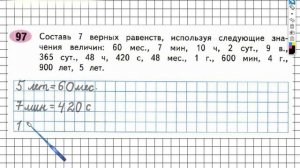 97 Составь 7 верных равенств, используя следующие зна-
чения величин: 60 мес., 7 мин, 10 ч, 2 сут., 9 в.,
365 сут., 48 ч, 420 с, 48 мес., 1 г., 600 мин, 4 г.,
900 лет, 5 лет.
5 лет = 60 мес.
7 мин = 420 с
1